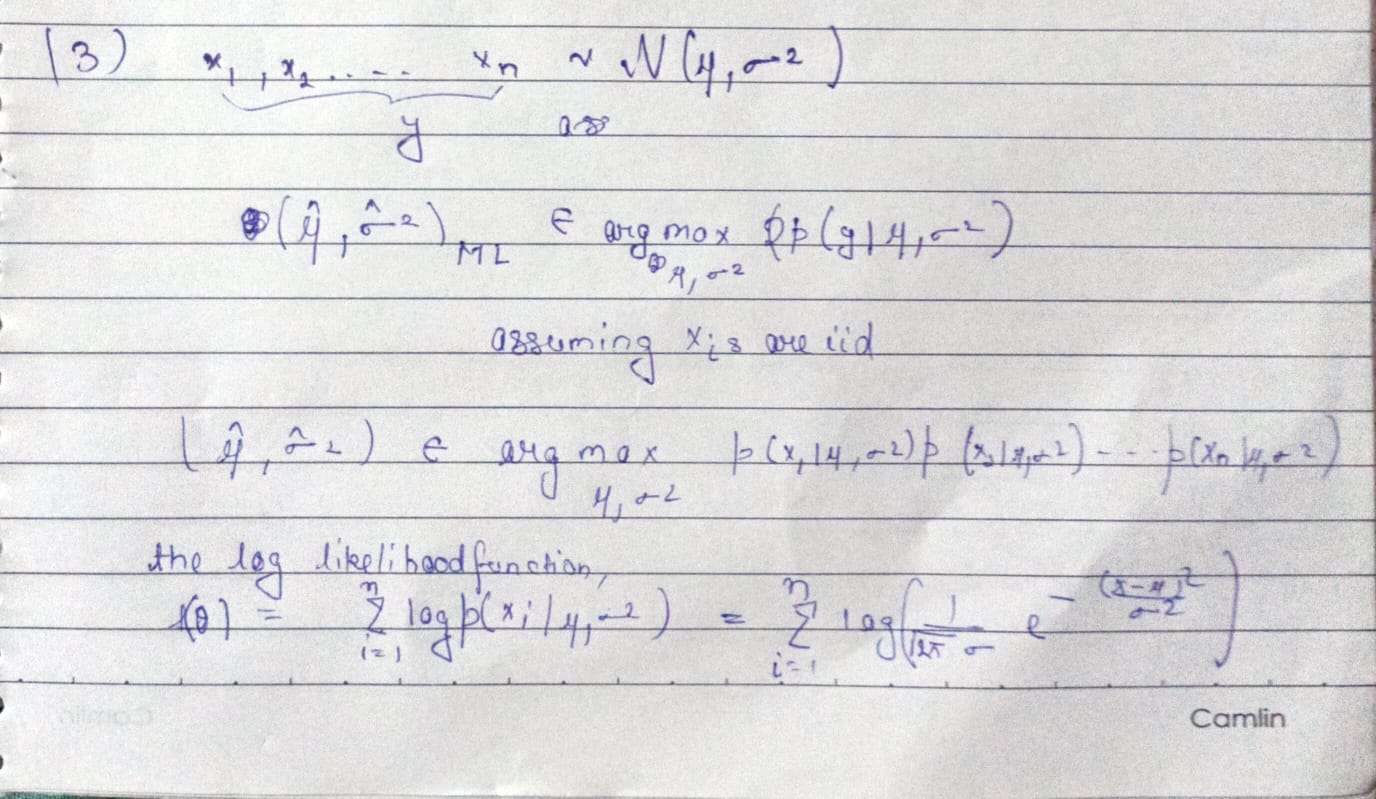 (3) x₁, x₂ ..... xₙ ~ N(μ, σ²)
y as
(μ̂, σ̂²)_ML ∈ arg max p(y|μ, σ²)
μ, σ²
assuming xᵢs are iid
(μ̂, σ̂²) ∈ arg max p(x₁|μ, σ²) p(x₂|μ, σ²) --- p(xₙ|μ, σ²)
μ, σ²
the log likelihood function,
l(θ) = Σᵢ₌₁ⁿ log p(xᵢ|μ, σ²) = Σᵢ₌₁ⁿ log(1/(√2π σ) e^(-(x-μ)²/σ²))
Camlin